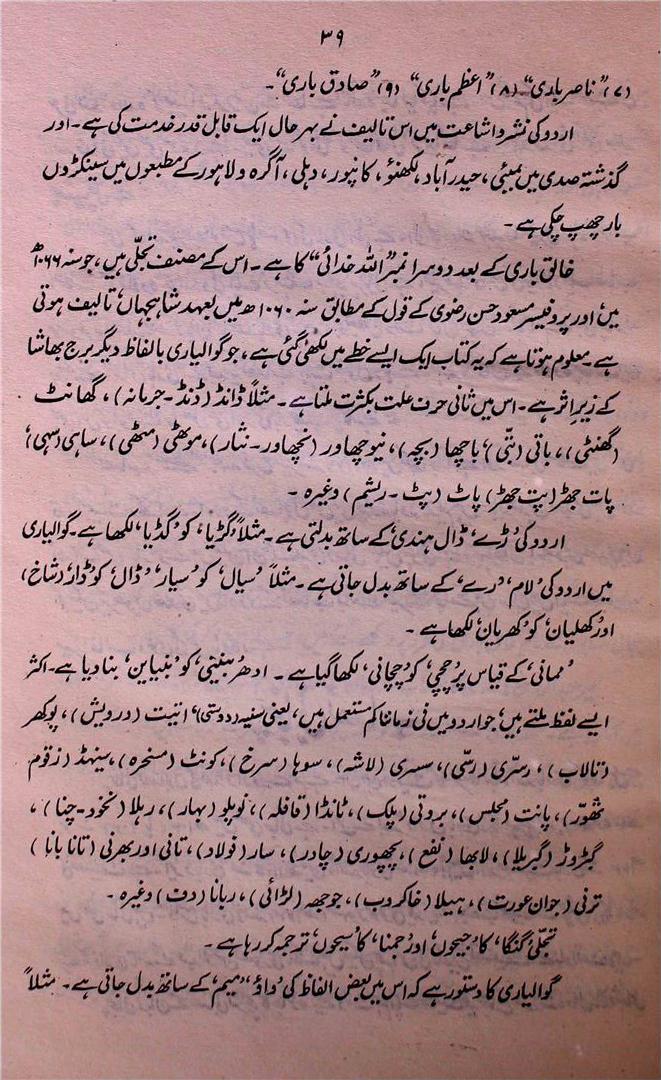 ۳۹
(۷) "ناصر باری" (۸) "اعظم باری" (۹) "صادق باری"۔
اردو کی نشر و اشاعت میں اس تالیف نے بہر حال ایک قابل قدر خدمت کی ہے۔ اور
گذشتہ صدی میں بمبئی، حیدر آباد، لکھنؤ، کانپور، دہلی، آگرہ و لاہور کے مطبعوں میں سینکڑوں
بار چھپ چکی ہے۔
خالق باری کے بعد دوسرا نمبر "اللہ خدائی" کا ہے۔ اس کے مصنف تجلّی ہیں، جو سنہ ۱۰۶۶ھ
میں، اور پروفیسر مسعود حسن رضوی کے قول کے مطابق سنہ ۱۰۶۰ھ میں بعہد شاہجہاں، تالیف ہوتی
ہے۔ معلوم ہوتا ہے کہ یہ کتاب ایک ایسے خطے میں لکھی گئی ہے، جو گوالیاری بالفاظ دیگر برج بھاشا
کے زیر اثر ہے۔ اس میں ثانی حرف علت بکثرت ملتا ہے۔ مثلاً ڈانڈ (ڈنڈ۔ جرمانہ)، گھانٹ
(گھنٹی)، باتی (بتّی)، باچھا (بچہ)، نیوچھاور (نچھاور۔ نثار)، موٹھی (مٹھی)، ساہی (سہی)،
پات جھڑ (پت جھڑ) پاٹ (پٹ۔ ریشم) وغیرہ۔
اردو کی 'ڑے'، ڈال ہندی کے ساتھ بدلتی ہے۔ مثلاً 'گڑیا' کو 'گڈیا' لکھا ہے۔ گوالیاری
میں اردو کی 'لام'، 'رے' کے ساتھ بدل جاتی ہے۔ مثلاً 'سیال' کو 'سیار'، 'ڈال' کو 'ڈار' (شاخ)
اور 'کھلیان' کو 'کھریان' لکھا ہے۔
'ممانی' کے قیاس پر 'چچی' کو 'چچانی' لکھا گیا ہے۔ ادھر بنیٹی کو بنیاین بنا دیا ہے۔ اکثر
ایسے لفظ ملتے ہیں، جو اردو میں فی زماننا کم مستعمل ہیں، یعنی سنیہ (دوستی)، اتیت (درویش)، پوکھر
(تالاب)، رسّری (رسّی)، سسری (لاشہ)، سوہا (سرخ)، کونٹ (مسخرہ)، سینہڈ (زقوم
تھوّر)، پانت (مجلس)، بروتی (پلک)، ٹانڈا (قافلہ)، نوپلو (بہار)، رہلا (نخود۔ چنا)،
گبڑوڑ (گبریلا)، لابھا (نفع)، پچھوری (چادر)، سار (فولاد)، تانی اور بھرنی (تانا بانا)
ترنی (جوان عورت)، ہیلا (خاکروب)، جوجھہ (لڑائی)، ربانا (دف) وغیرہ۔
تجلّی 'گنگا' کا 'جیحوں' اور 'جمنا' کا 'سیحوں' ترجمہ کر رہا ہے۔
گوالیاری کا دستور ہے کہ اس میں بعض الفاظ کی 'واؤ'، 'میم' کے ساتھ بدل جاتی ہے۔ مثلاً